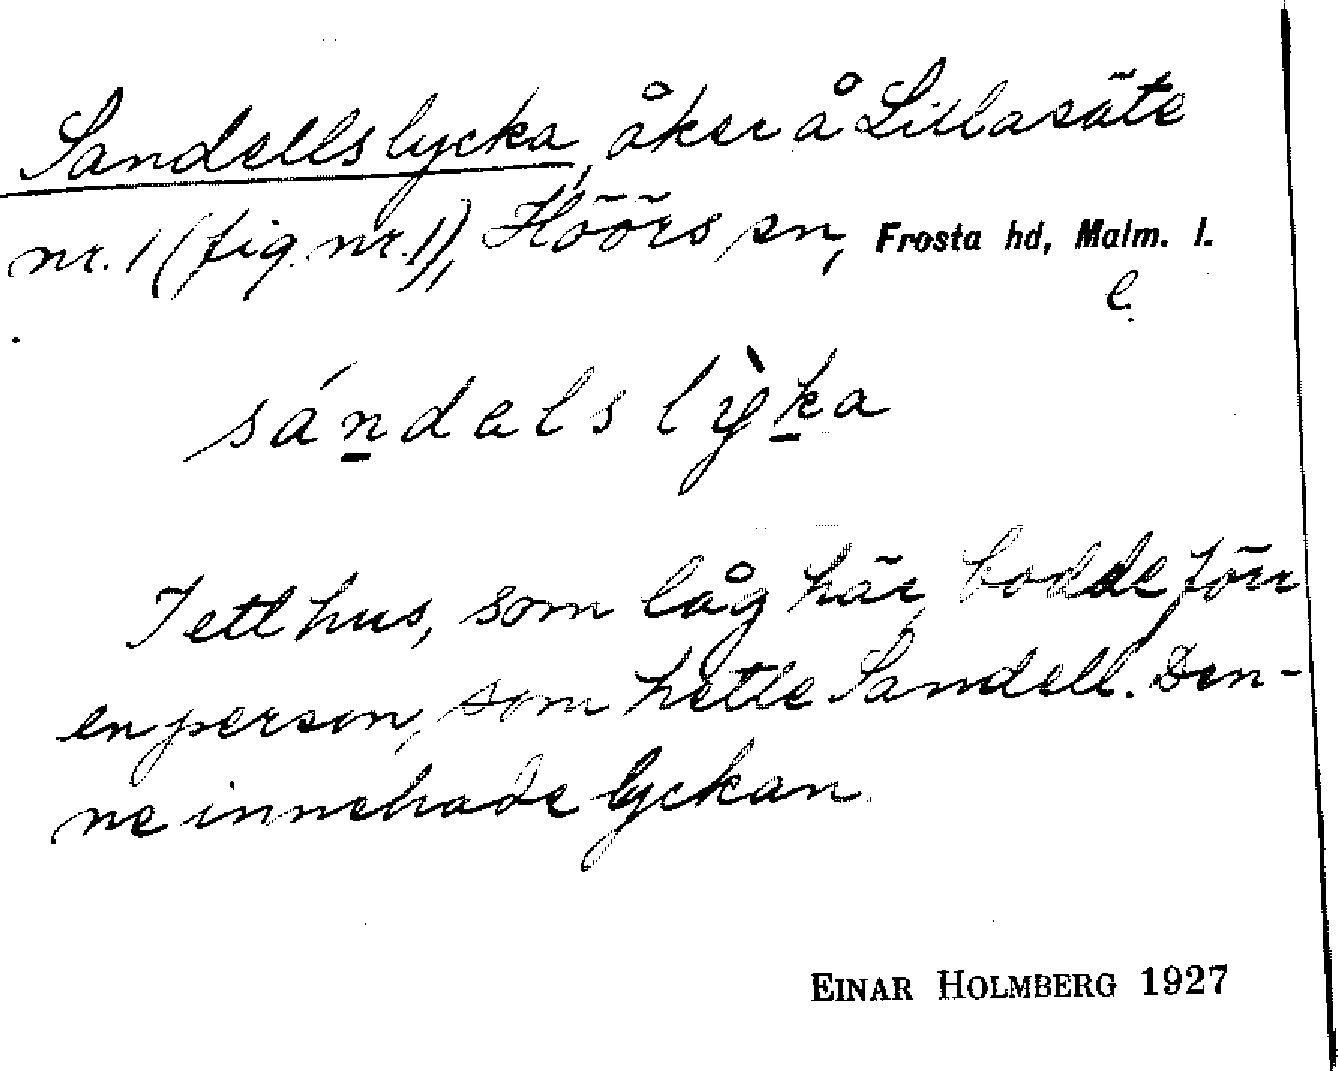 Sandellslycka, åker å Lillasäte
nr. 1 (fig. nr. 1), Höörs sn, Frosta hd, Malm. l.
e.
sándals lỳka
I ett hus, som låg här, bodde förr
en person, som hette Sandell. Den-
ne innehade lyckan.
EINAR HOLMBERG 1927